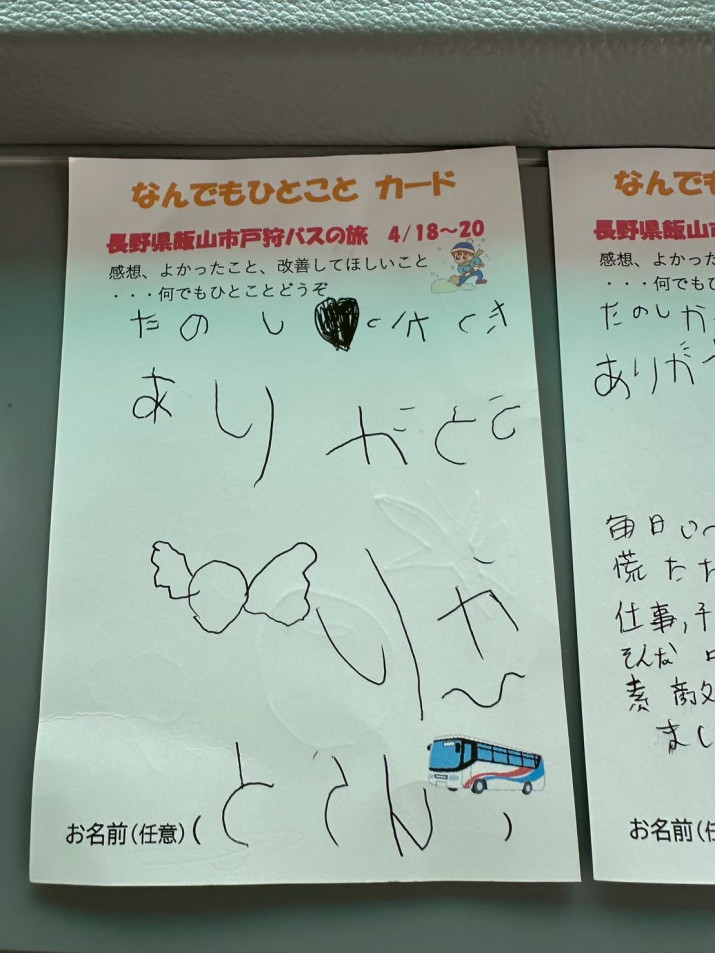 なんでもひとこと カード
長野県飯山市戸狩バスの旅 4/18~20
感想、よかったこと、改善してほしいこと
・・・何でもひとことどうぞ
たのし
ありがとう
お名前(任意)( )
なんでも
長野県飯山市
感想、よかった
・・・何でもひ
たのしか
ありが
毎日
慌た
仕事,子
そんな
素敵
まし
お名前(任